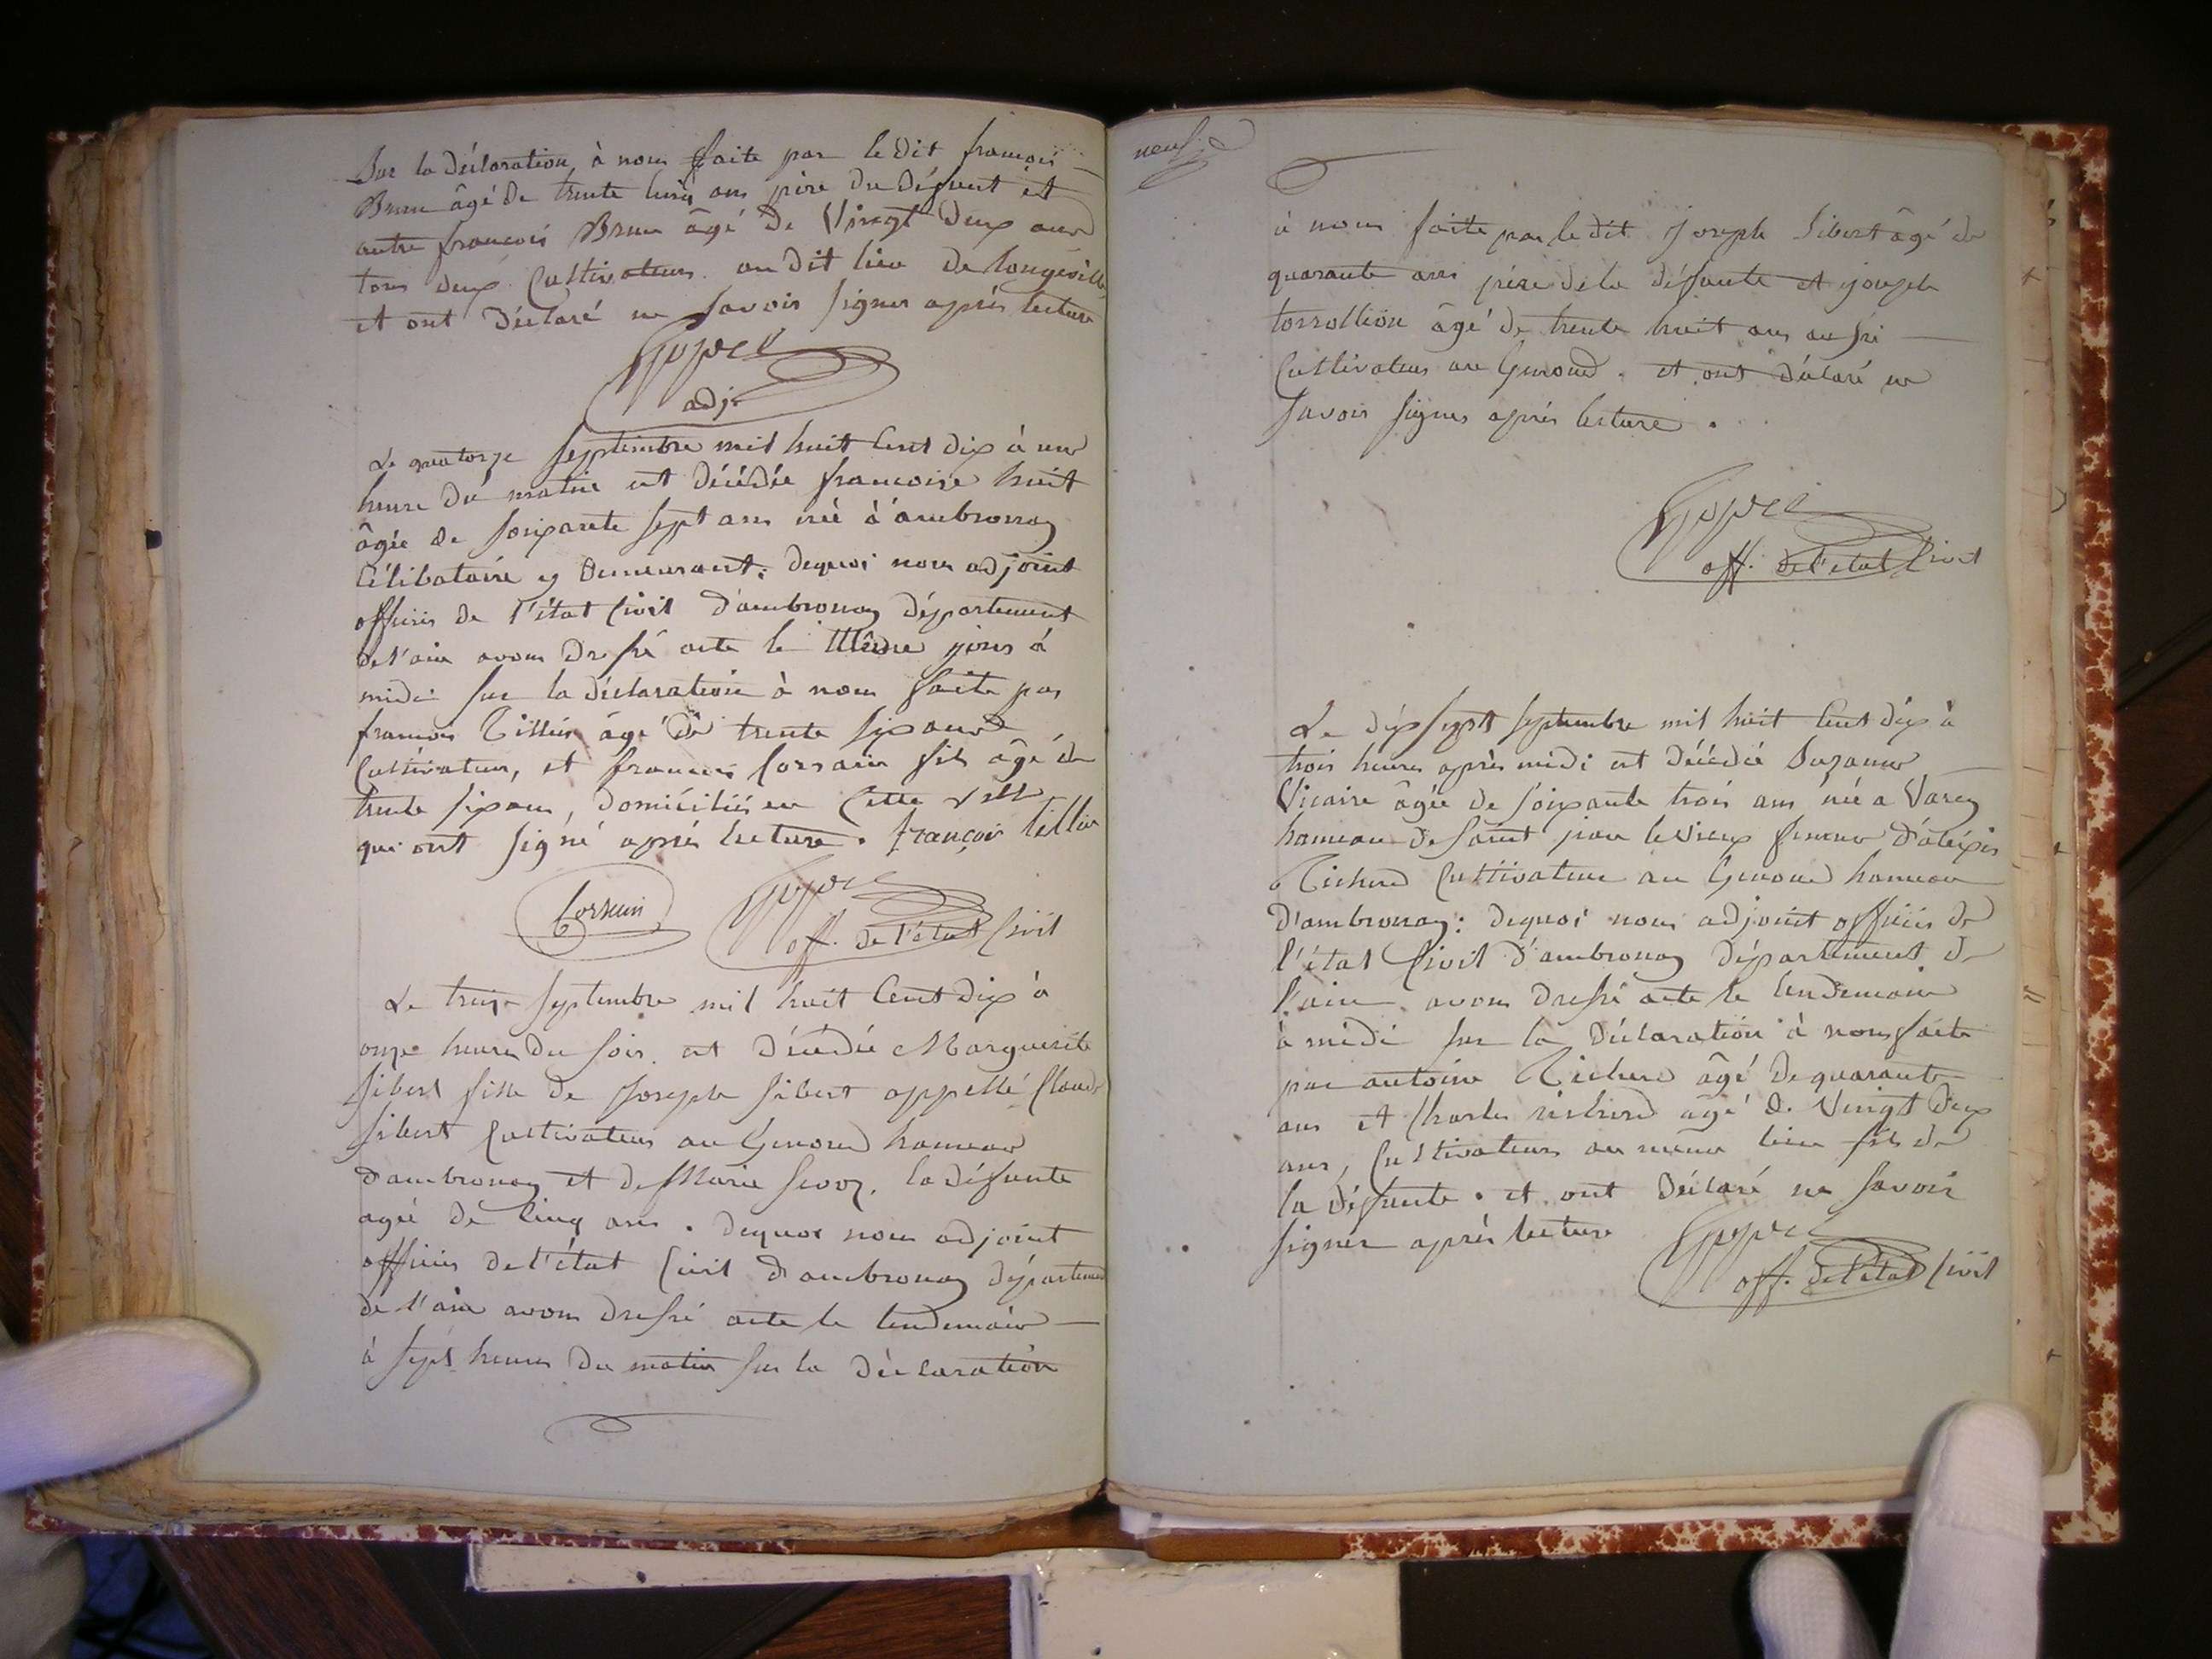 Sur la déclaration à nous faite par le dit francois
Brun âgé de trente cinq ans père du défunt et
autre francois Brun âgé de Vingt deux ans
tous deux Cultivateurs au dit lieu de longeville
et ont déclaré ne savoir signer après lecture
adj.
Le quatorze septembre mil huit Cent dix à une
heure du matin est décédée francoise huit
âgée de soixante sept ans née à ambronay
Célibataire y demeurant; dequoi nous adjoint
officier de l'état Civil d'ambronay département
de l'ain avons dressé acte le Même jour à
midi sur la déclaration à nous faite par
francois Tillier âgé de trente six ans
Cultivateur, et francois Corsain fils âgé de
trente six ans, domiciliés en Cette ville
qui ont signé après lecture. françois tillier
Corsain
off. de l'état Civil
Le treize septembre mil huit Cent dix à
onze heures du soir est décédée Marguerite
Sibert fille de Joseph Sibert appellé Claude
Sibert Cultivateur au Genoud hameau
d'ambronay et de Marie la défunte
agée de Cinq ans. dequoi nous adjoint
officier de l'état Civil d'ambronay département
de l'ain avons dressé acte le lendemain
à sept heures du matin sur la déclaration
neuf
à nous faite par le dit Joseph Sibert âgé de
quarante ans père de la défunte et joseph
âgé de trente huit ans aussi
Cultivateur au Genoud. et ont déclaré ne
savoir signer après lecture.
off. de l'état Civil
Le dix sept septembre mil huit Cent dix à
trois heures après midi est décédée Suzanne
Vicaire âgée de soixante trois ans née a Varey
hameau de saint jean le Vieux femme d'aléxis
Richerd Cultivateur au Genoud hameau
d'ambronay: dequoi nous adjoint officier de
l'état Civil d'ambronay département de
l'ain avons dressé acte le lendemain
à midi sur la déclaration à nous faite
par antoine Richerd âgé de quarante
ans et Charles richerd âgé de Vingt deux
ans, Cultivateurs au même lieu fils de
la défunte. et ont déclaré ne savoir
signer après lecture
off. de l'état Civil